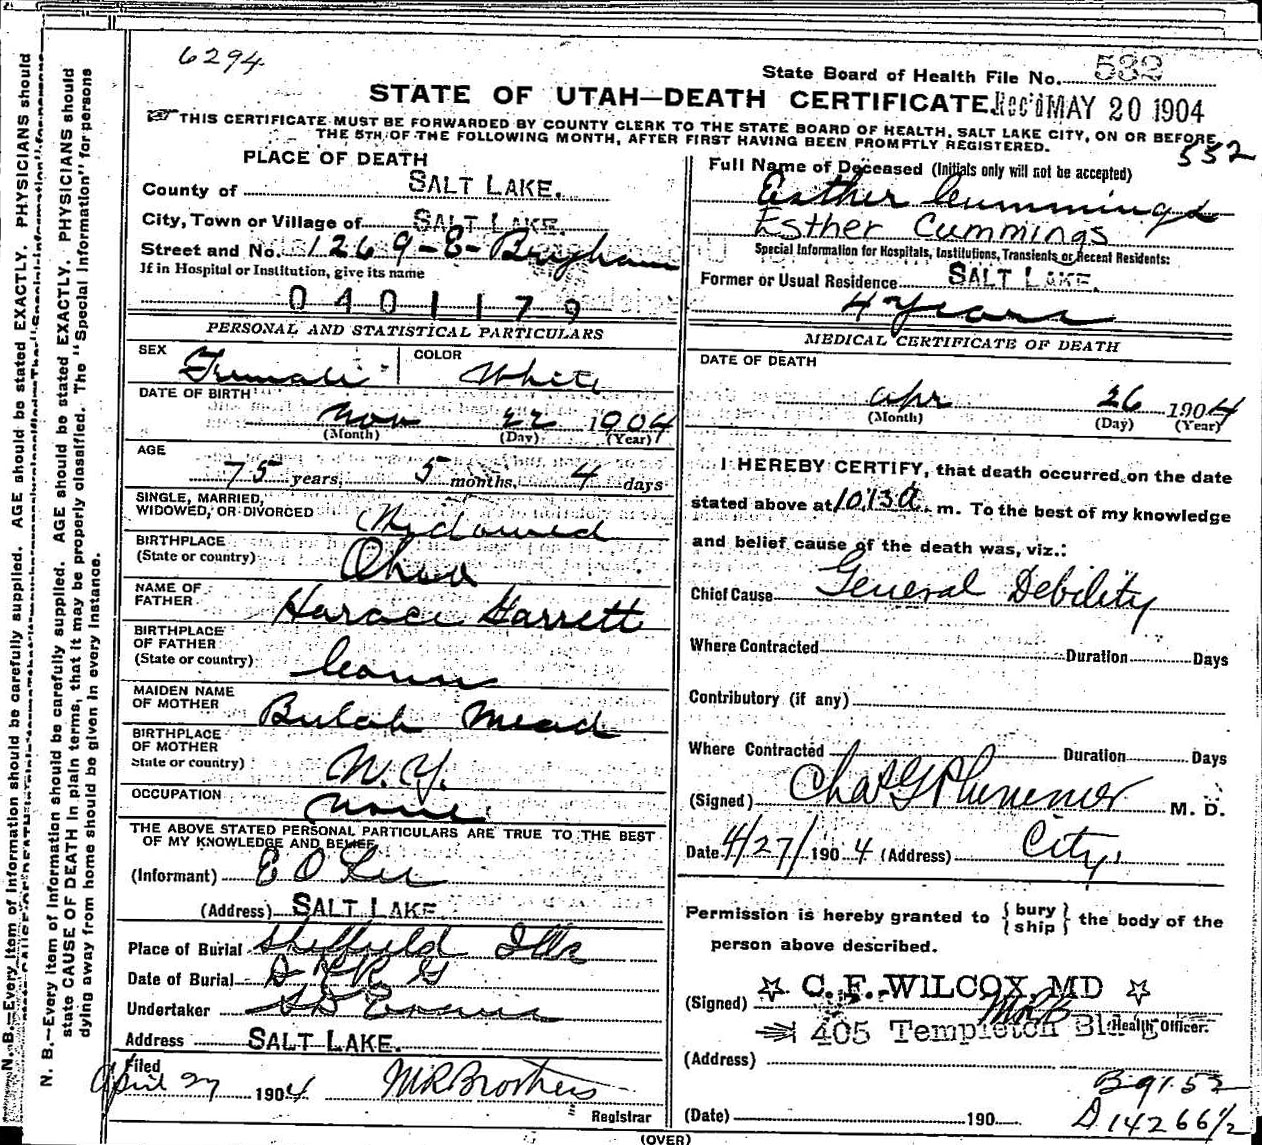 6294
State Board of Health File No. 532
STATE OF UTAH—DEATH CERTIFICATE. Rec'd MAY 20 1904
THIS CERTIFICATE MUST BE FORWARDED BY COUNTY CLERK TO THE STATE BOARD OF HEALTH, SALT LAKE CITY, ON OR BEFORE
THE 5TH OF THE FOLLOWING MONTH, AFTER FIRST HAVING BEEN PROMPTLY REGISTERED.
552
PLACE OF DEATH
County of SALT LAKE.
City, Town or Village of SALT LAKE.
Street and No. 1269-E-Brigham
If in Hospital or Institution, give its name
0401179
PERSONAL AND STATISTICAL PARTICULARS
SEX Female COLOR White
DATE OF BIRTH
Nov 22 1904
(Month) (Day) (Year)
AGE
75 years, 5 months, 4 days
SINGLE, MARRIED,
WIDOWED, OR DIVORCED Widowed
BIRTHPLACE
(State or country) Ohio
NAME OF
FATHER Horace Garrett
BIRTHPLACE
OF FATHER
(State or country) Conn
MAIDEN NAME
OF MOTHER Bulah Mead
BIRTHPLACE
OF MOTHER
State or country) N.Y.
OCCUPATION None
THE ABOVE STATED PERSONAL PARTICULARS ARE TRUE TO THE BEST
OF MY KNOWLEDGE AND BELIEF
(Informant) E O Lee
(Address) SALT LAKE
Place of Burial Sheffield Ills
Date of Burial D & R G
Undertaker S D Evans
Address SALT LAKE.
Filed
April 27 1904 M R Brothers
Registrar
Full Name of Deceased (Initials only will not be accepted)
Esther Cummings
Esther Cummings
Special Information for Hospitals, Institutions, Transients or Recent Residents:
Former or Usual Residence SALT LAKE.
4 Years
MEDICAL CERTIFICATE OF DEATH
DATE OF DEATH
Apr 26 1904
(Month) (Day) (Year)
I HEREBY CERTIFY, that death occurred on the date
stated above at 10.13 a. m. To the best of my knowledge
and belief cause of the death was, viz.:
Chief Cause General Debility
Where Contracted Duration Days
Contributory (if any)
Where Contracted Duration Days
(Signed) Chas G Plummer M. D.
Date 4/27/1904 (Address) City.
Permission is hereby granted to {bury ship} the body of the
person above described.
(Signed) C. F. WILCOX, MD
MRB
405 Templeton Bldg Health Officer.
(Address)
B 91.52
(Date) 190
D 14266½
(OVER)
N. B.—Every item of information should be carefully supplied. AGE should be stated EXACTLY. PHYSICIANS should
N. B.—Every item of information should be carefully supplied. AGE should be stated EXACTLY. PHYSICIANS should
state CAUSE OF DEATH in plain terms, that it may be properly classified. The "Special Information" for persons
dying away from home should be given in every instance.